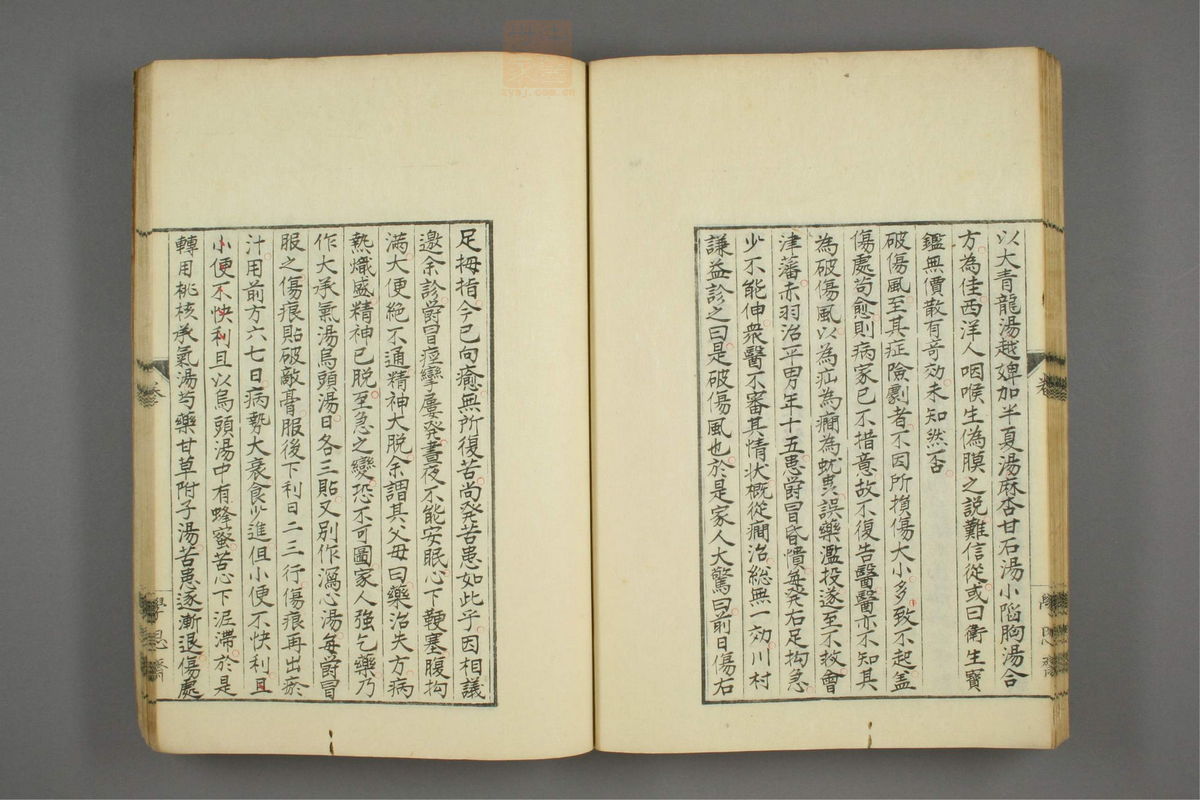 以大青龍湯越婢加半夏湯麻杏甘石湯小陷胸湯合
方為佳西洋人咽喉生偽膜之説難信從或曰衛生寶
鑑無價散有奇効未知然否
破傷風至其症險劇者不因所損傷大小多致不起盖
傷處苟愈則病家已不措意故不復告醫醫亦不知其
為破傷風以為疝為癇為蚘蟲誤藥濫投遂至不救會
津藩赤羽治平男年十五患欝冒昏憒每発右足拘急
少不能伸衆醫不審其情状概從癇治總無一効川村
謙益診之曰是破傷風也於是家人大驚曰前日傷右
足拇指今已向癒無所復苦尚発苦患如此乎因相議
邀余診欝冒痙攣屢発晝夜不能安眠心下鞕塞腹拘
滿大便絶不通精神大脱余謂其父母曰藥治失方病
熱熾盛精神已脱至急之變恐不可圖家人強乞藥乃
作大承氣湯烏頭湯日各三貼又別作瀉心湯每欝冒
服之傷痕貼破敵膏服後下利日二三行傷痕再出瘀
汁用前方六七日病勢大衰食少進但小便不快利且
小便不快利且以烏頭湯中有蜂蜜苦心下泥滯於是
轉用桃核承氣湯芍藥甘草附子湯苦患遂漸退傷處
卷
學思齋
zysj.com.cn